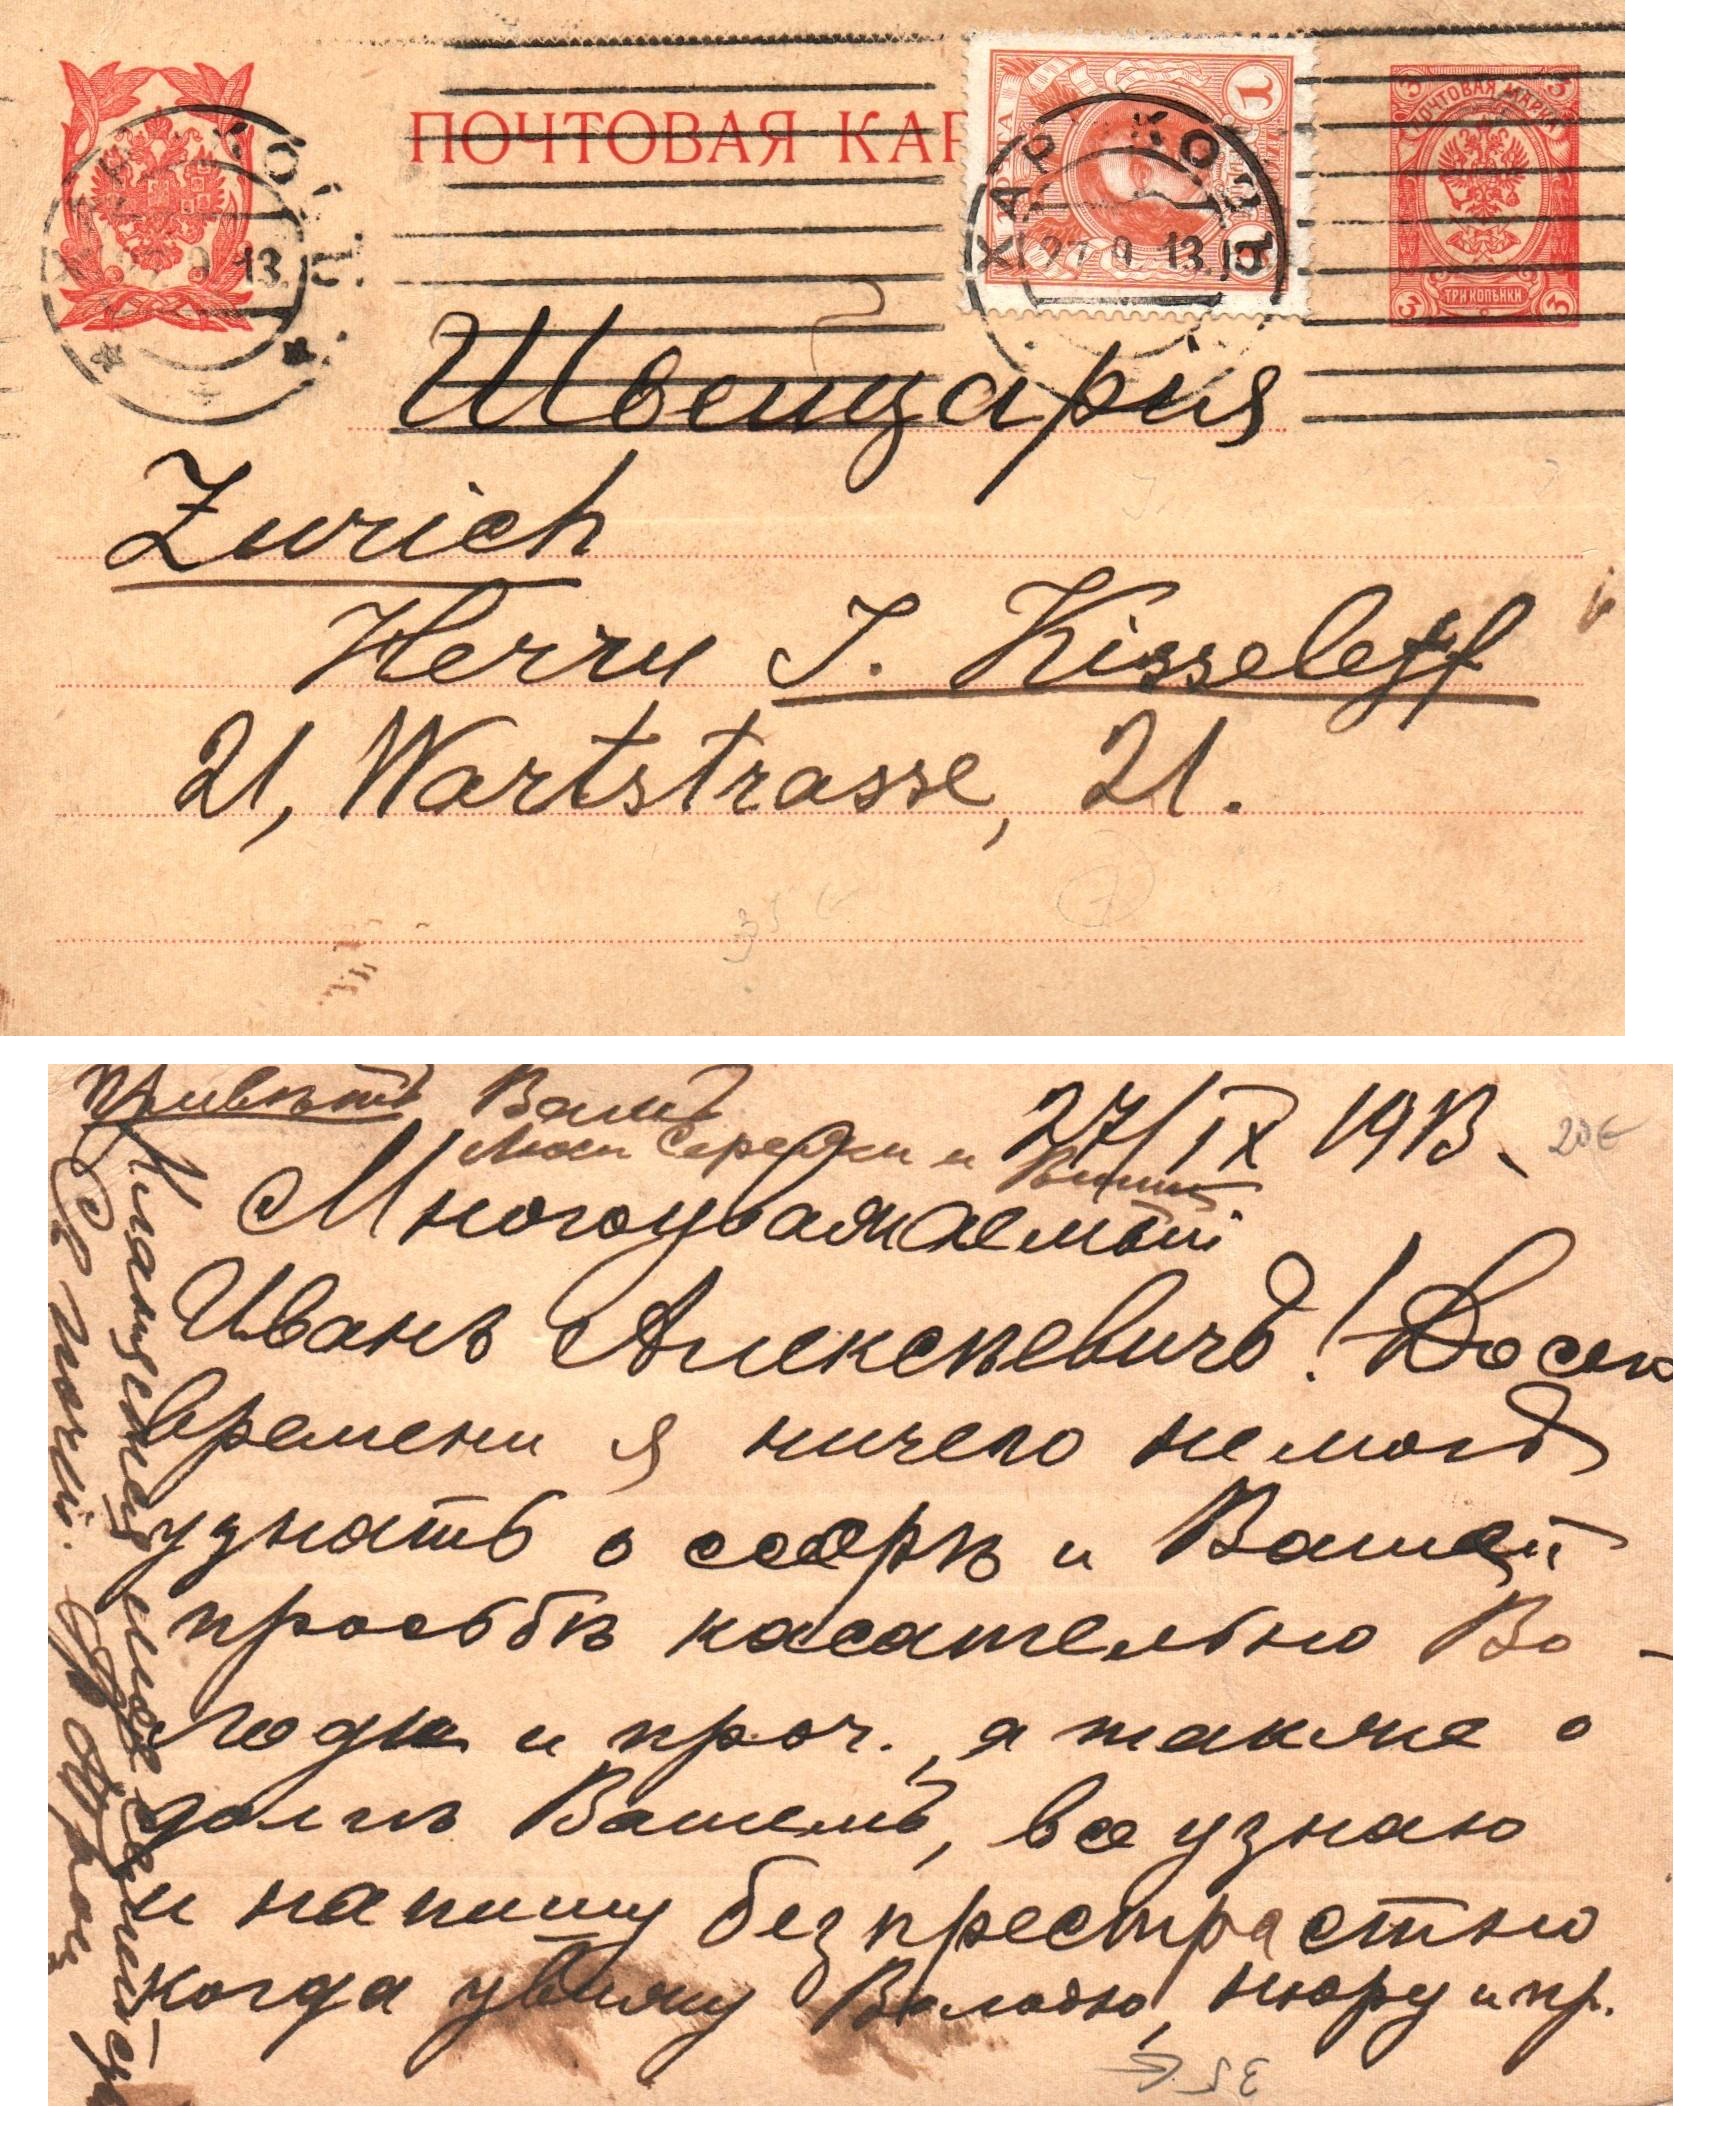 ПОЧТОВАЯ КАР
ПОЧТОВАЯ МАРКА
3 3
ТРИ КОПѢЙКИ
3 3
1
ХАРЬКОВЪ
27 9 13
ХАРЬКОВЪ
27 9 13
Швейцарія
Zurich
Herrn J. Kisseleff
21, Wartstrasse, 21.
35 €
7
привѣтъ Вамъ
27/IX 1913.
20€
Сережи и
Многоуважаемый
Иванъ Алексѣевичъ! До сего
времени я ничего не могъ
узнать о ссорѣ и Вашей
просьбѣ касательно Во-
лоди и проч., а также о
долгѣ Вашемъ, все узнаю
и напишу безпрестрастно
когда увижу Володю, Нюру и пр.
Кланяется
35 €